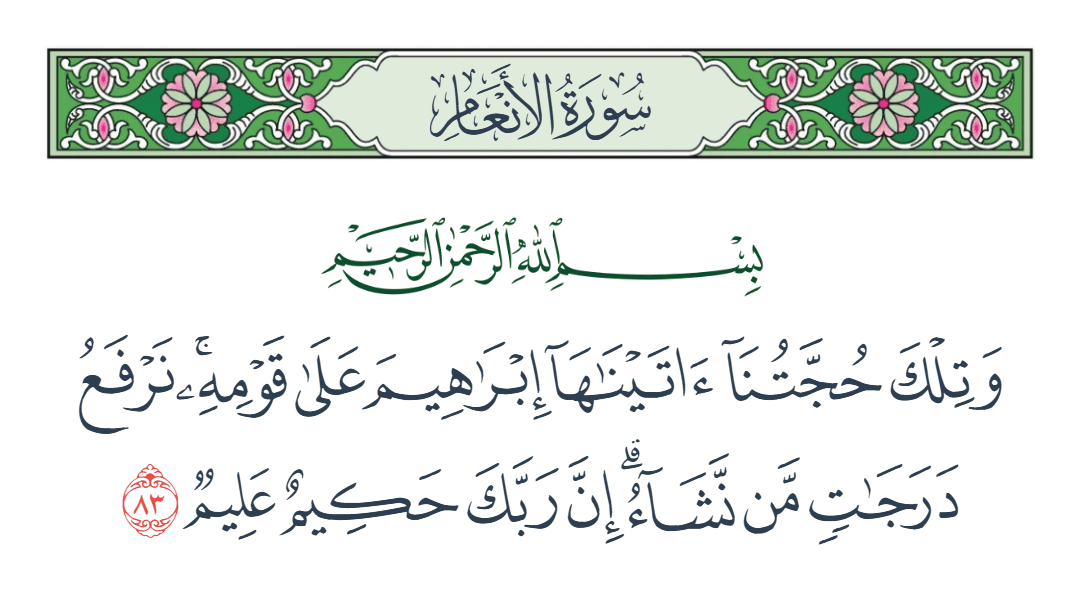 سُورَةُ الأَنْعَامِ
بِسْمِ ٱللَّهِ ٱلرَّحْمَٰنِ ٱلرَّحِيمِ
وَتِلْكَ حُجَّتُنَآ ءَاتَيْنَٰهَآ إِبْرَٰهِيمَ عَلَىٰ قَوْمِهِۦۚ نَرْفَعُ
دَرَجَٰتٍ مَّن نَّشَآءُۗ إِنَّ رَبَّكَ حَكِيمٌ عَلِيمٌ ٨٣